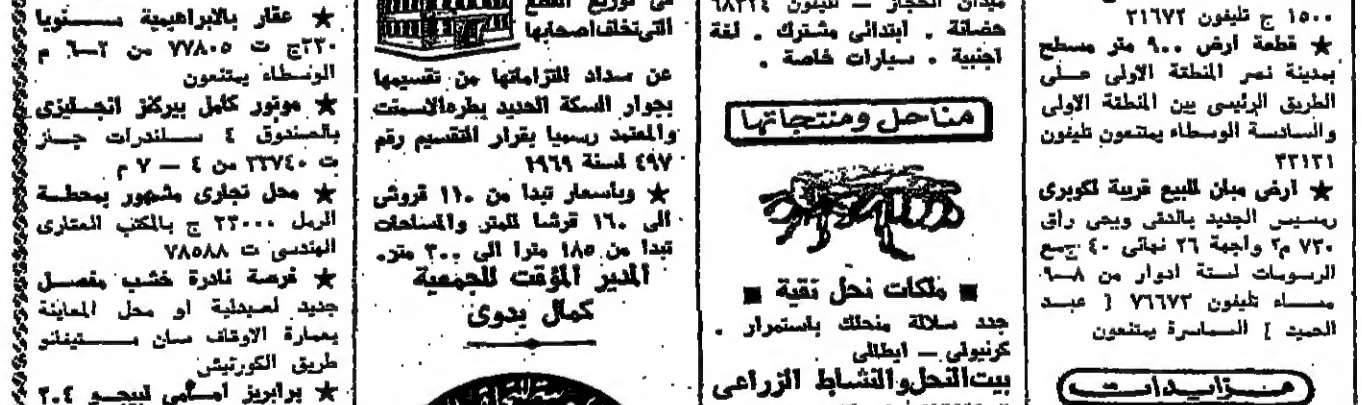 ١٥٠٠ ج تليفون ٢١٦٧٢
★ قطعة ارض ٩٠٠ متر مسطح
بمدينة نصر المنطقة الاولى عـلى
الطريق الرئيسى بين المنطقة الاولى
والسادسة الوسطاء يمتنعون تليفون
٣٢١٢١
★ ارض مبان للبيع قريبة لكوبرى
رمسيس الجديد بالدقى وبحى راق
٧٣٠ م٢ واجهة ٢٦ نهائى ٤٠ ج جمع
الرسومات لستة ادوار من ٨ــ٩
مســاء تليفون ٧٦٦٧٢ [ عبــد
الحميد ] السماسرة يمتنعون
مـزايـدات
ميدان الحجاز ــ تليفون ٦٨٢٢٤
حضانة . ابتدائى مشترك . لغة
اجنبية . سيارات خاصة .
مناحل ومنتجاتها
■ ملكات نحل نقية ■
جدد سلالة منحلك باستمرار .
كرنيولى ــ ايطالى
بيت النحل والنشاط الزراعى
فى توزيع القطع
التى تخلف اصحابها
عن سداد التزاماتها من تقسيمها
بجوار السكة الحديد بطره الاسمنت
والمعتمد رسميا بقرار التقسيم رقم
٤٩٧ لسنة ١٩٦٩
★ وباسعار تبدا من ١١٠ قروش
الى ١٦٠ قرشا للمتر والمساحات
تبدا من ١٨٥ مترا الى ٣٠٠ متر.
المدير المؤقت للجمعية
كمال بدوى
★ عقار بالابراهيمية ســـنويا
٢٣٠ج ت ٧٧٨٠٥ من ٢ــ٦ م
الوسطاء يمتنعون
★ موتور كامل بيركنز انجــليزى
بالصندوق ٤ ســلندرات جــاز
ت ٢٢٧٤٠ من ٤ ــ ٧ م
★ محل تجارى مشهور بمحطــة
الرمل ٢٣٠٠٠ ج بالمكتب العقارى
الهندسى ت ٧٨٥٨٨
★ فرصة نادرة خشب مفصــل
جديد لصيدلية او محل المعاينة
بعمارة الاوقاف سان ســـتيفانو
طريق الكورنيش
★ برابريز امــامى لبيجــو ٢٠٤